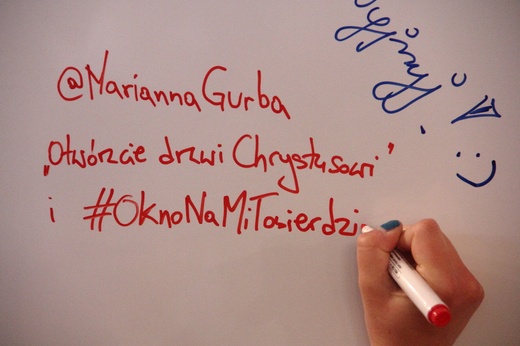 @MariannaGurba
„Otwórzcie drzwi Chrystusowi”
i #OknoNaMiłosierdzie
:)